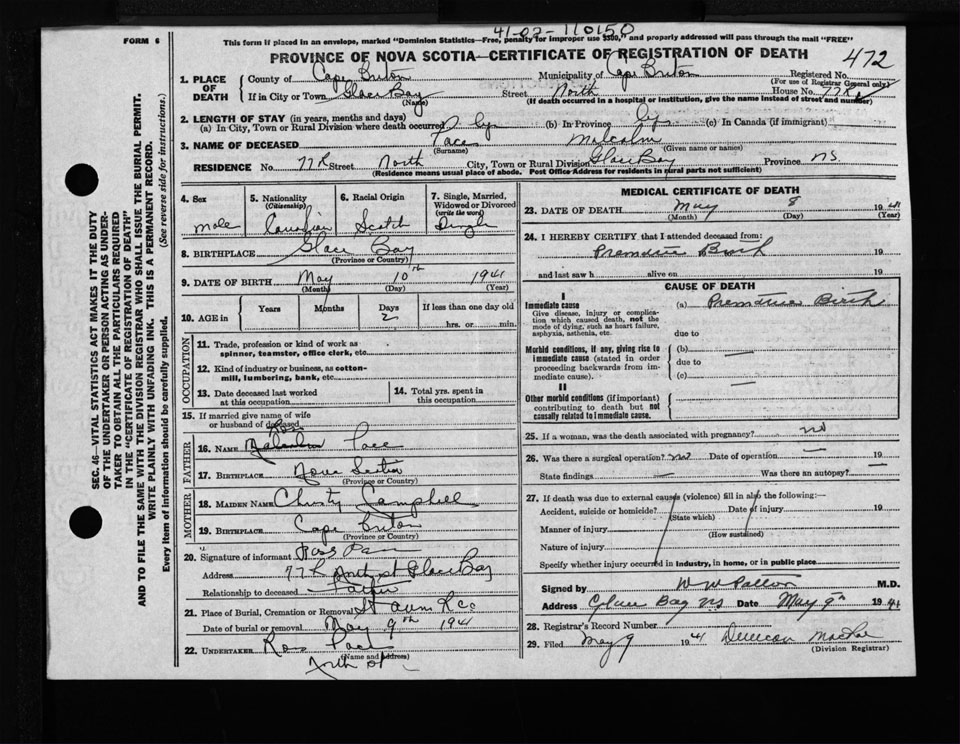 41-02-110150
FORM 6
This form if placed in an envelope, marked "Dominion Statistics—Free, penalty for improper use $300," and properly addressed will pass through the mail "FREE"
PROVINCE OF NOVA SCOTIA—CERTIFICATE OF REGISTRATION OF DEATH 472
1. PLACE OF DEATH County of Cape Breton Municipality of Cape Breton Registered No.
(For use of Registrar General only)
If in City or Town Glace Bay Street North House No. 77
(Name) (If death occurred in a hospital or institution, give the name instead of street and number)
2. LENGTH OF STAY (in years, months and days)
(a) In City, Town or Rural Division where death occurred (b) In Province (c) In Canada (if immigrant)
3. NAME OF DECEASED Pace Malcolm
(Surname) (Given name or names)
RESIDENCE No. 77 Street North City, Town or Rural Division Glace Bay Province NS
(Residence means usual place of abode. Post Office Address for residents in rural parts not sufficient)
4. Sex male
5. Nationality (Citizenship) Canadian
6. Racial Origin Scotch
7. Single, Married, Widowed or Divorced (write the word) Single
8. BIRTHPLACE Glace Bay
(Province or Country)
9. DATE OF BIRTH May 10th 1941
(Month) (Day) (Year)
10. AGE in Years Months Days 2 If less than one day old hrs. or min.
OCCUPATION
11. Trade, profession or kind of work as spinner, teamster, office clerk, etc.
12. Kind of industry or business, as cotton-mill, lumbering, bank, etc.
13. Date deceased last worked at this occupation
14. Total yrs. spent in this occupation
15. If married give name of wife or husband of deceased
FATHER
16. NAME Ross Pace
17. BIRTHPLACE Nova Scotia
(Province or Country)
MOTHER
18. MAIDEN NAME Christy Campbell
19. BIRTHPLACE Cape Breton
(Province or Country)
20. Signature of informant Ross Pace
Address 77 North st Glace Bay
Relationship to deceased Father
21. Place of Burial, Cremation or Removal St
Date of burial or removal May 9th 1941
22. UNDERTAKER Ross Pace
(Name and Address)
North St
MEDICAL CERTIFICATE OF DEATH
23. DATE OF DEATH May 8 1941
(Month) (Day) (Year)
24. I HEREBY CERTIFY that I attended deceased from:
Premature Birth 19
and last saw h alive on 19
CAUSE OF DEATH
I
Immediate cause (a) Premature Birth
Give disease, injury or complication which caused death, not the mode of dying, such as heart failure, asphyxia, asthenia, etc.
due to
Morbid conditions, if any, giving rise to immediate cause (stated in order proceeding backwards from immediate cause).
(b)
due to
(c)
II
Other morbid conditions (if important) contributing to death but not causally related to immediate cause.
25. If a woman, was the death associated with pregnancy? no
26. Was there a surgical operation? no Date of operation 19
State findings Was there an autopsy?
27. If death was due to external causes (violence) fill in also the following:—
Accident, suicide or homicide? Date of injury 19
(State which)
Manner of injury
(How sustained)
Nature of injury
Specify whether injury occurred in industry, in home, or in public place
Signed by M.D.
Address Glace Bay NS Date May 9th 1941
28. Registrar's Record Number
29. Filed May 9 1941 Duncan MacRae
(Division Registrar)
SEC. 46—VITAL STATISTICS ACT MAKES IT THE DUTY
OF THE UNDERTAKER OR PERSON ACTING AS UNDER-
TAKER TO OBTAIN ALL THE PARTICULARS REQUIRED
IN THE "CERTIFICATE OF REGISTRATION OF DEATH"
AND TO FILE THE SAME WITH THE DIVISION REGISTRAR WHO SHALL ISSUE THE BURIAL PERMIT.
WRITE PLAINLY WITH UNFADING INK. THIS IS A PERMANENT RECORD.
Every item of information should be carefully supplied. (See reverse side for instructions.)